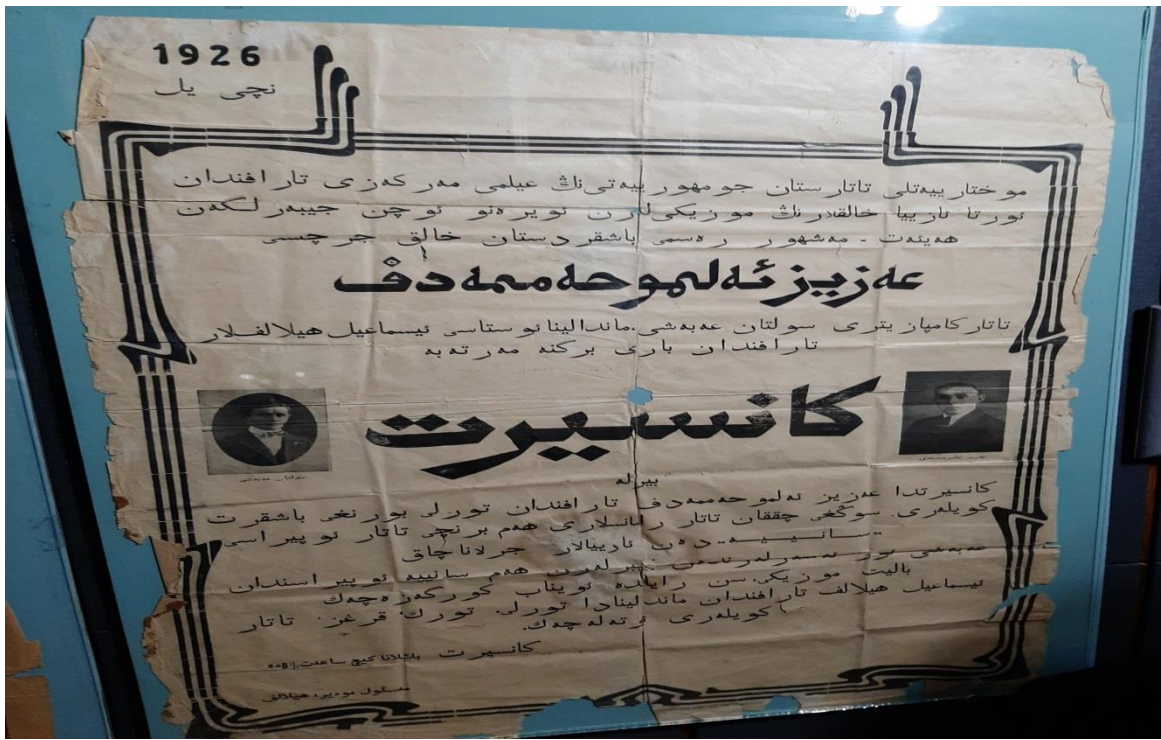 1926
نچی یل
موختارییەتلی تاتارستان جومهورییەتی نڭ عیلمی مەرکەزی تارافندان
ئورتا ئازییا خالقلارنڭ موزیکی‌لارن ئویرەنو ئوچن جیبەرلگەن
هەیئەت - مەشهور رەسمی باشقردستان خالق جرچسی
عەزیز ئەلموحەممەدف
تاتار کامپازیتری سولتان عەبەشی. ماندالینا ئوستاسی ئیسماعیل هیلالفلار
تارافندان باری برگنە مەرتەبە
کانسیرت
سولتان عەبەشی
بیرلە
کانسیرتدا عەزیز ئەلموحەممەدف تارافندان تورلی بورنغی باشقرت
کویلەری. سوڭغی چققان تاتار رامانسلاری هەم برنچی تاتار ئوپیراسی
-سانییە- دەن ئارییالار جرلاناچاق
عەبەشی ئوز ئەسەرلەرندەن هەم سانییە ئوپیراسندان
بالیت موزیکی‌سن رایالدە ئویناب کورگەزەچەك
ئیسماعیل هیلالف تارافندان ماندالینادا تورلی تورك، قرغز، تاتار
کویلەری ئوتەلەچەك.
کانسیرت باشلانا کیچ ساعەت 8
مەسئول مودیر، هیلالف